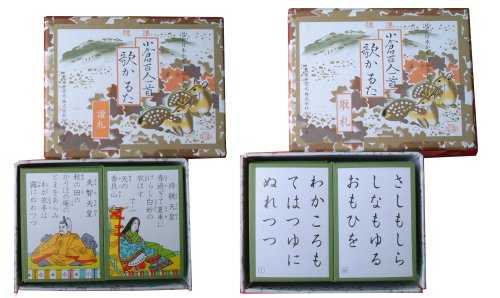 小倉百人一首
歌かるた
読札
持統天皇
春過ぎて夏来に
けらし白妙の
衣ほす
てふ
天の
香具山
天智天皇
秋の田の
かりほの庵の
とまをあらみ
わが衣手は
露にぬれつつ
小倉百人一首
歌かるた
取札
さしもしら
しなもゆる
おもひを
わかころも
てはつゆに
ぬれつつ